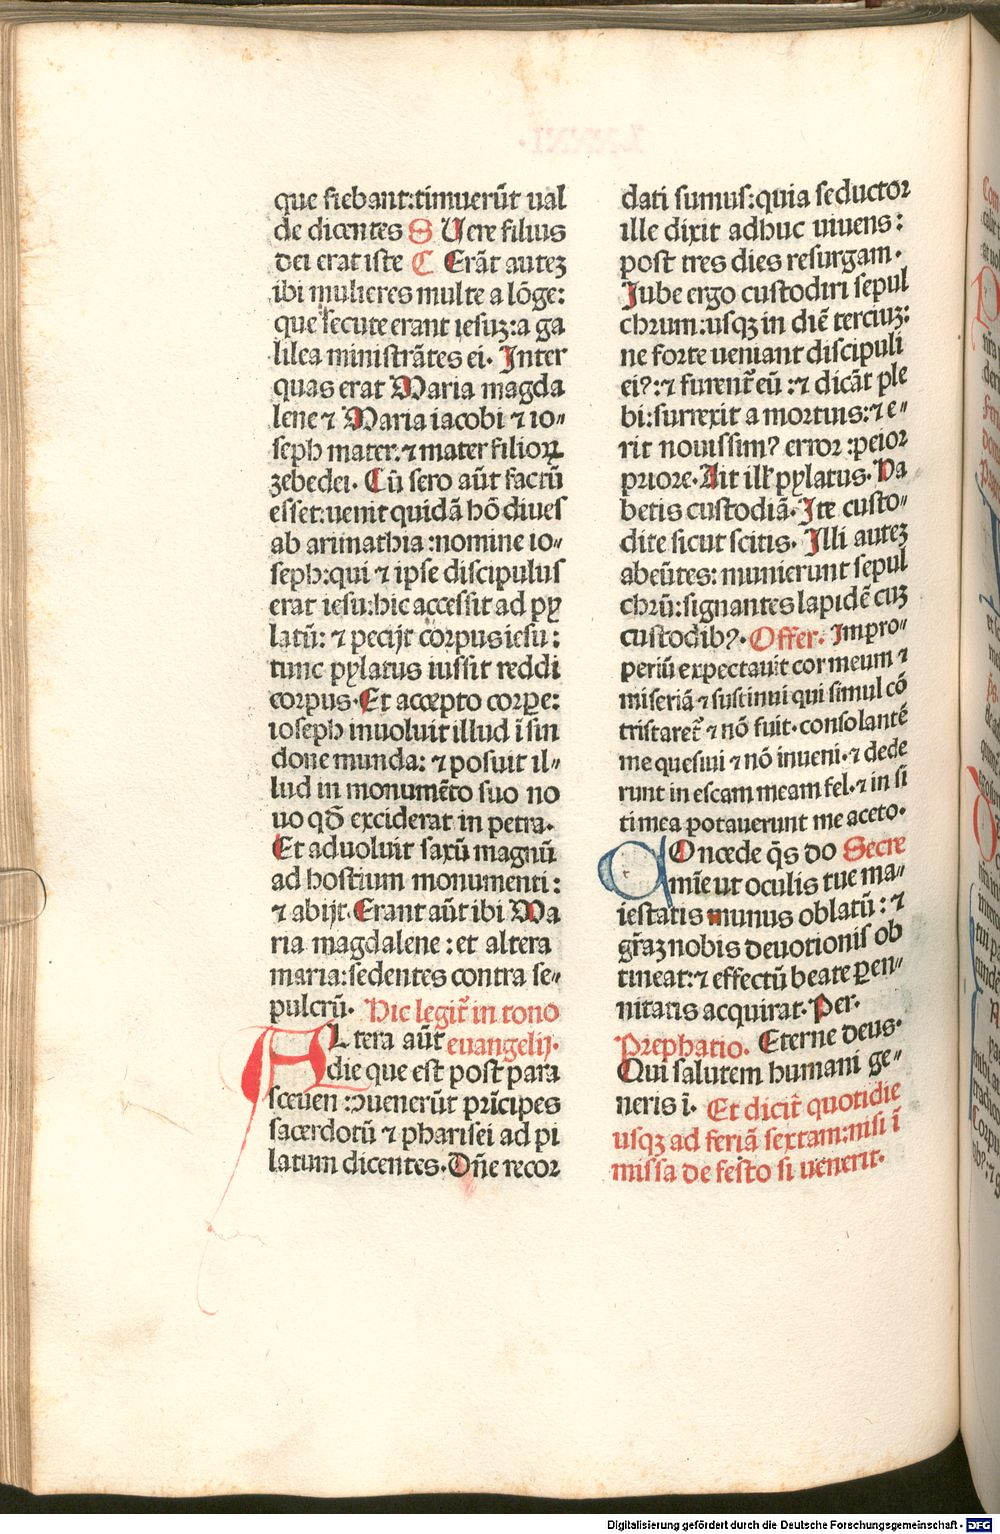 que fiebant:timuerūt val
de dicentes S Uere filius
dei erat iste C Erāt auteʒ
ibi mulieres multe a lōge:
que secute erant iesuʒ:a ga
lilea ministrātes ei. Inter
quas erat Maria magda
lene ⁊ Maria iacobi ⁊ io⸗
seph mater:⁊ mater filioꝝ
zebedei. Cū sero aūt factū
esset:uenit quidā hō diues
ab arimathia:nomine io⸗
seph:qui ⁊ ipse discipulus
erat iesu:hic accessit ad py
latū: ⁊ pecijt corpus iesu:
tunc pylatus iussit reddi
corpus. Et accepto corꝑe:
ioseph inuoluit illud ī sin
done munda: ⁊ posuit il⸗
lud in monumēto suo no
uo qđ exciderat in petra.
Et aduoluit saxū magnū
ad hostium monumenti:
⁊ abijt. Erant aūt ibi Ma
ria magdalene: et altera
maria:sedentes contra se⸗
pulcrū. Hic legit̄ in tono
ALtera aūt euangelij.
die que est post para
sceuen:ↄuenerūt prīcipes
sacerdotū ⁊ pharisei ad pi
latum dicentes. Dn̄e recor
dati sumus:quia seductor
ille dixit adhuc uiuens:
post tres dies resurgam.
Iube ergo custodiri sepul
chrum:usqʒ in diē terciuʒ:
ne forte ueniant discipuli
eiꝰ:⁊ furent̄ eū:⁊ dicāt ple
bi:surrexit a mortuis:⁊ e⸗
rit nouissimꝰ error:peior
priore. Ait ill' pylatus. Ha
betis custodiā. Ite custo⸗
dite sicut scitis. Illi auteʒ
abeūtes: munierunt sepul
chrū:signantes lapidē cuʒ
custodibꝰ. Offer. Impro⸗
periū expectauit cor meum ⁊
miseriā ⁊ sustinui qui simul cō
tristaret̄ ⁊ nō fuit. consolantē
me quesiui ⁊ nō inueni. ⁊ dede
runt in escam meam fel. ⁊ in si
ti mea potauerunt me aceto.
COncede q̄s do Secre
mn̄e ut oculis tue ma⸗
iestatis munus oblatū: ⁊
gr̄aʒ nobis deuotionis ob
tineat:⁊ effectū beate ꝑen⸗
nitatis acquirat. Per.
Prephatio. Eterne deus.
Qui salutem humani ge⸗
neris ī. Et dicit̄ quotidie
usqʒ ad feriā sextam:nisi ī
missa de festo si uenerit.
Digitalisierung gefördert durch die Deutsche Forschungsgemeinschaft - DFG